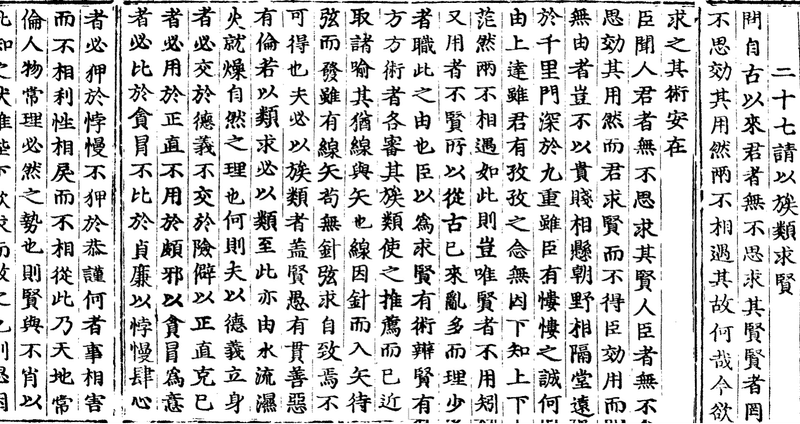 二十七請以族類求賢
問自古以來君者無不思求其賢賢者罔
不思効其用然兩不相遇其故何哉今欲
求之其術安在
臣聞人君者無不思求其賢人臣者無不
思効其用然而君求賢而不得臣効用而
無由者豈不以貴賤相懸朝野相隔堂遠
於千里門深於九重雖臣有慺慺之誠何
由上達雖君有孜孜之念無因下知上下
茫然兩不相遇如此則豈唯賢者不用矧
又用者不賢所以從古已來亂多而理少
者職此之由也臣以為求賢有術辨賢有
方方術者各審其族類使之推薦而已近
取諸喻其猶線與矢也線因針而入矢待
弦而發雖有線矢苟無針弦求自致焉不
可得也夫必以族類者蓋賢愚有貫善惡
有倫若以類求必以類至此亦由水流濕
火就燥自然之理也何則夫以德義立身
者必交於德義不交於險僻以正直克已
者必用於正直不用於頗邪以貪冒為意
者必比於貪冒不比於貞廉以悖慢肆心
者必狎於悖慢不狎於恭謹何者事相害
而不相利性相戾而不相從此乃天地常
倫人物常理必然之勢也則賢與不肖以